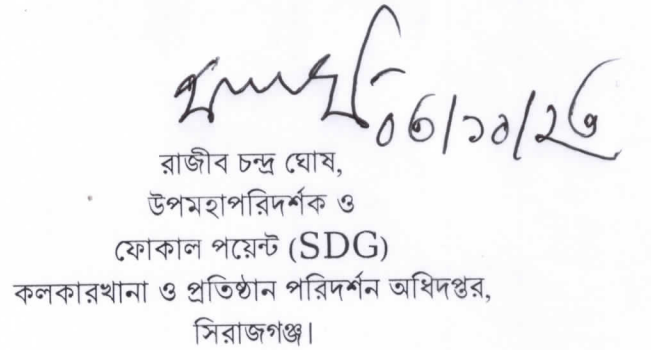 ০৩/১০/২৩
রাজীব চন্দ্র ঘোষ,
উপমহাপরিদর্শক ও
ফোকাল পয়েন্ট (SDG)
কলকারখানা ও প্রতিষ্ঠান পরিদর্শন অধিদপ্তর,
সিরাজগঞ্জ।